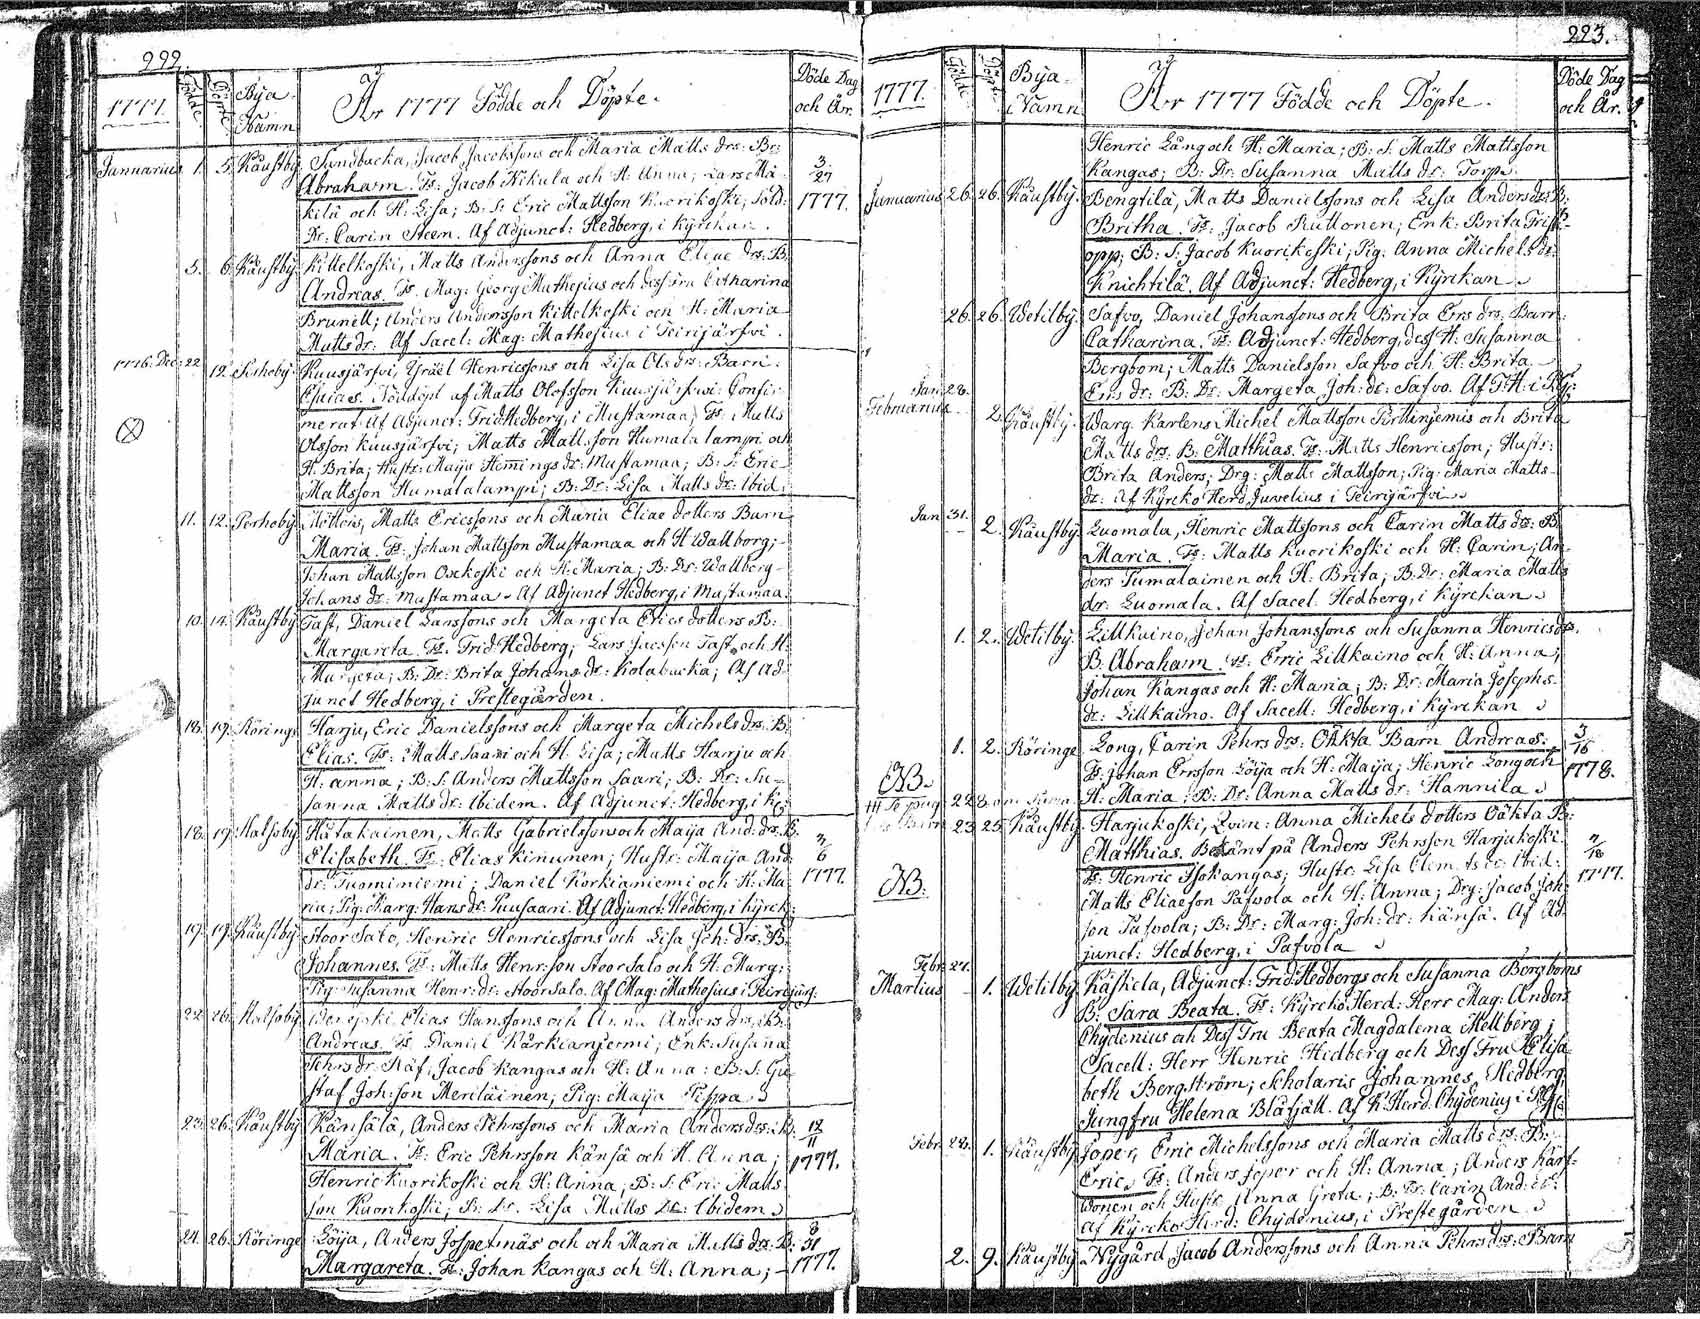 222.
1777.
Födde.
Döpte
Bÿa
Namn
År 1777 Födde och Döpte.
Döde Dag
och År.
Januarius 1. 5. Käustby Sundbacka, Jacob Jacobssons och Maria Matts drs: B:
Abraham. Fs: Jacob Nikula och H: Anna; Lars
kilä och H: Lisa; B: S: Eric Mattsson Kuorikoski; Sold:
Dr: Carin Steen. Af Adjunct: Hedberg, i Kÿrckan.
3/27
1777.
5. 6. Käustby Kittelkoski, Matts Anderssons och Anna Eliae drs: B:
Andreas. Fs. Mag: Georg Mathesius och dess fru Catharina
Brunell; Anders Andersson Kittelkoski och H: Maria
Matts dr: Af Sacel: Mag: Mathesius i Teirijärfvi.
1776. Dec: 22 12. Kuusjärfvi, Ysräel Henricssons och Lisa Ols drs: Barn:
Esaias. Nöddöpt af Matts Olofsson Kuusjärfwi: Confir-
merat af Adjunct: Frid: Hedberg, i Mustamaa; Fs: Matts
Olsson Kuusjärfvi; Matts Mattsson Humalalampi och
H: Brita; Hustr: Maija Hemmings dr: Mustamaa; B: S: Eric
Mattsson Humalalampi; B: Dr: Lisa Matts dr: Ibid:
11. 12. Perhobÿ Möttönen, Matts Ericssons och Maria Eliae dotters Barn
Maria. Fs: Johan Mattsson Mustamaa och H Wallborg;
Johan Mattsson Oxekoski och H: Maria; B: Dr: Wallborg
Johans dr: Mustamaa. Af Adjunct Hedberg, i Mustamaa.
10. 14. Käustby Tast, Daniel Larssons och Margeta Erics dotters B:
Margareta. Fs. Frid: Hedberg; Lars Jacobsson Tast, och H:
Margeta; B: Dr: Brita Johans dr: Kolabacka; Af Ad-
junct Hedberg, i Prestegården.
18. 19. Köringe Harju, Eric Danielssons och Margeta Michels drs: B:
Elias. Fs: Matts Saari och H. Lisa; Matts Harju och
H: anna; B: S: Anders Mattsson Saari; B: Dr: Su-
sanna Matts dr: Ibidem. Af Adjunct: Hedberg, i K:
18. 19. Halsobÿ Hatakainen, Matts Gabrielssons och Maija And: drs: B.
Elisabeth. Fs: Elias Kinunen; Hustr: Maija And:
dr: Tuominiemi; Daniel Korkianiemi och H: Ma-
ria; Pig: Marg: Hans dr: Puusaari. Af Adjunct: Hedberg, i Kÿrck:
1777.
19. 19. Käustby Stoor Salo, Henric Henricssons och Lisa Joh: drs: B:
Johannes. Fs: Matts Henr:son Stoor Salo och H: Marg:
Pig: Susanna Henr: dr: Stoor Salo. Af Mag: Mathesius i Teirijärf:
22. 26. Halsobÿ Elias Hanssons och Anna Anders drs: B:
Andreas. Fs. Daniel Kärkianiemi; Enk: Susana
Pehrs dr: Räf; Jacob Kangas och H: Anna: B: S: Gu-
staf Joh:son Meriläinen; Pig: Maija
23. 26. Käustby Känsälä, Anders Pehrssons och Maria Anders drs: B:
Maria. Fs: Eric Pehrsson Känsä och H. Anna;
Henric Kuorikoski och H: Anna; B: S: Eric Matts-
son Kuorikoski; B: Dr: Lisa Matts Dr: Ibidem
12/11
1777.
24. 26. Köringe Löija, Anders och Maria Matts drs: B:
Margareta. Fs: Johan Kangas och H: Anna;
3/31
1777.
223.
1777.
Födde.
Döpte.
Bÿa
Namn
År 1777 Födde och Döpte.
Döde Dag
och År.
Henric Lång och H: Maria; B: S. Matts Mattsson
Kangas; B: Dr: Susanna Matts dr: Torp.
Januarius 26. 26. Käustby. Bengtilä, Matts Danielssons och Lisa Anders drs: B:
Britha. Fs: Jacob Ruttonen; Enk: Brita
opp; B: S: Jacob Kuorikoski; Pig: Anna Michels dr:
Knichtilä. Af Adjunct: Hedberg, i Kÿrckan
26. 26. Wetilbÿ. Safvo, Daniel Johanssons och Brita Ers drs: Barn:
Catharina. Fs: Adjunct: Hedberg, dess H: Susanna
Bergbom; Matts Danielsson Safvo och H: Brita
Ers dr: B: Dr: Margeta Joh: dr: Safvo. Af F: H: i K:
Jan: 28.
Februarius 2. Käustby. Warg Karlens, Michel Mattsson och Brita
Matts drs: B: Matthias. Fs: Matts Henricsson; Hustr:
Brita Anders; Drg: Matts Mattsson; Pig: Maria Matts
dr: Af Kÿrcko Herd. Juvelius i Teirijärfvi
Jan 31. 2. Käustby Luomala, Henric Mattssons och Carin Matts drs: B:
Maria. Fs: Matts Kuorikoski och H: Carin; An-
ders Pumalainen och H: Brita; B: Dr: Maria Matts
dr: Luomala. Af Sacel: Hedberg, i Kÿrckan
1. 2. Wetilbÿ. Lillkaino, Johan Johanssons och Susanna Henrics drs:
B: Abraham. Fs: Erric Lillkaino och H: Anna;
Johan Kangas och H: Maria; B: Dr: Maria Josephs
dr: Lillkaino. Af Sacell: Hedberg, i Kÿrckan
1. 2. Köringe Long, Carin Pehrs drs: Oäkta Barn Andreas.
Fs: Johan Ersson Löija och H: Maija; Henric Long och
H: Maria; B: Dr: Anna Matts dr: Hannila
3/16
1778.
NB.
23. 25. Käustby Harjukoski, Qvin: Anna Michels dotters Oäkta B:
Matthias. Bekänt på Anders Pehrsson Harjukoski
Fs: Henric Isokangas; Hustr: Lisa Clemts dr: Ibid:
Matts Eliaeson Pafvola och H: Anna; Drg: Jacob Joh:
son Pafvola; B: Dr: Marg: Joh: dr: Känsä. Af Ad-
junct: Hedberg, i Pafvola
1777.
NB:
Febr: 27.
Martius 1. Wetilbÿ Käskela, Adjunct: Frid: Hedbergs och Susanna Bergboms
B: Sara Beata. Fs: Kÿrcko Herd: Herr Mag: Anders
Chÿdenius och Dess Fru Beata Magdalena Mellberg;
Sacell: Herr Henric Hedberg och Dess Fru Elisa-
beth Bergström; Scholaris Johannes Hedberg,
Jungfru Helena Blåfjäll. Af K: Herd. Chÿdenius i
Febr: 28. 1. Käustby Joper, Erric Michelssons och Maria Matts drs: B:
Erric. Fs: Anders Joper och H: Anna; Anders Karf-
wonen och Hustr: Anna Greta; B: Dr: Carin And: dr:
Af Kÿrcko Herd: Chÿdenius, i Prestegården
2. 9. Käustby Nÿgård Jacob Anderssons och Anna Pehrs drs: Barn